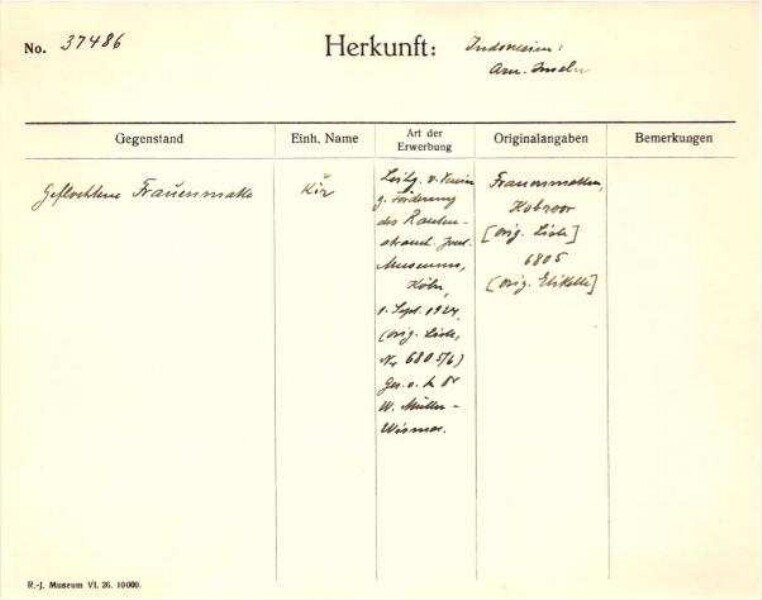 No. 37486
Herkunft: Indonesien:
Aru-Inseln
Gegenstand
Einh. Name
Art der
Erwerbung
Originalangaben
Bemerkungen
Geflochtene Frauenmatte
Kir
v. Verein
z. Förderung
des Rauten-
strauch-Joest-
Museums,
Köln,
1. Sept. 1927
(orig. Liste,
Nr. 6805/6)
Ges. v. Dr
W. Müller-
Wismar.
Frauenmatten,
Kobroor
[orig. Liste]
6805
[orig. Etikette]
R.-J. Museum VI. 26. 10000.